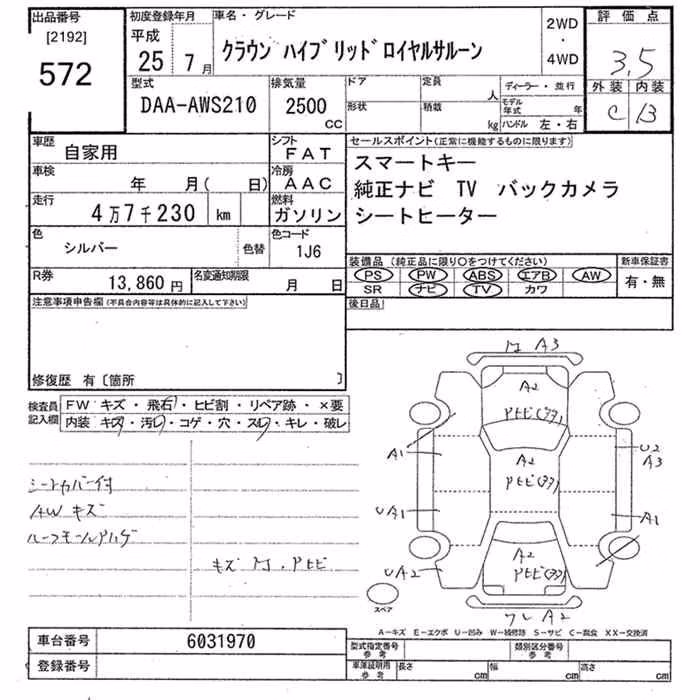 出品番号 初度登録年月 車名・グレード 2WD 評価点
[2192] 平成 ・
572 25 7月 クラウン ハイブリッドロイヤルサルーン 4WD 3.5
型式 排気量 ドア 定員 人 ディーラー・並行 外装 内装
DAA-AWS210 2500 CC 形状 積載 kg モデル年式 年 C B
ハンドル 左・右
車歴 自家用 シフト FAT セールスポイント(正常に機能するものに限ります)
車検 年 月( 日) 冷房 AAC スマートキー
走行 4万7千230 km 燃料 ガソリン 純正ナビ TV バックカメラ
色 シルバー 色替 色コード 1J6 シートヒーター
R券 13,860円 名変通知期限 月 日 装備品 (純正品に限り○をつけてください) 新車保証書
PS PW ABS エアB AW 有・無
SR ナビ TV カワ
注意事項申告欄(不具合内容等は具体的に記入して下さい) 後日品
修復歴 有〔箇所 〕
検査員記入欄 FW キズ・飛石・ヒビ割・リペア跡・×要
内装 キズ・汚レ・コゲ・穴・スレ・キレ・破レ
シートカバー付
AWキズ
ルーフモールアハゲ
A3
A2
A1 A2 U2
A3
UA1 A1
UA2 A2
A2
スペア
A―キズ E―エクボ U―凹み W―補修跡 S―サビ C―腐食 XX―交換済
車台番号 6031970 型式指定番号 参考 類別区分番号 参考
登録番号 車庫証明用 参考 長さ cm 幅 cm 高さ cm